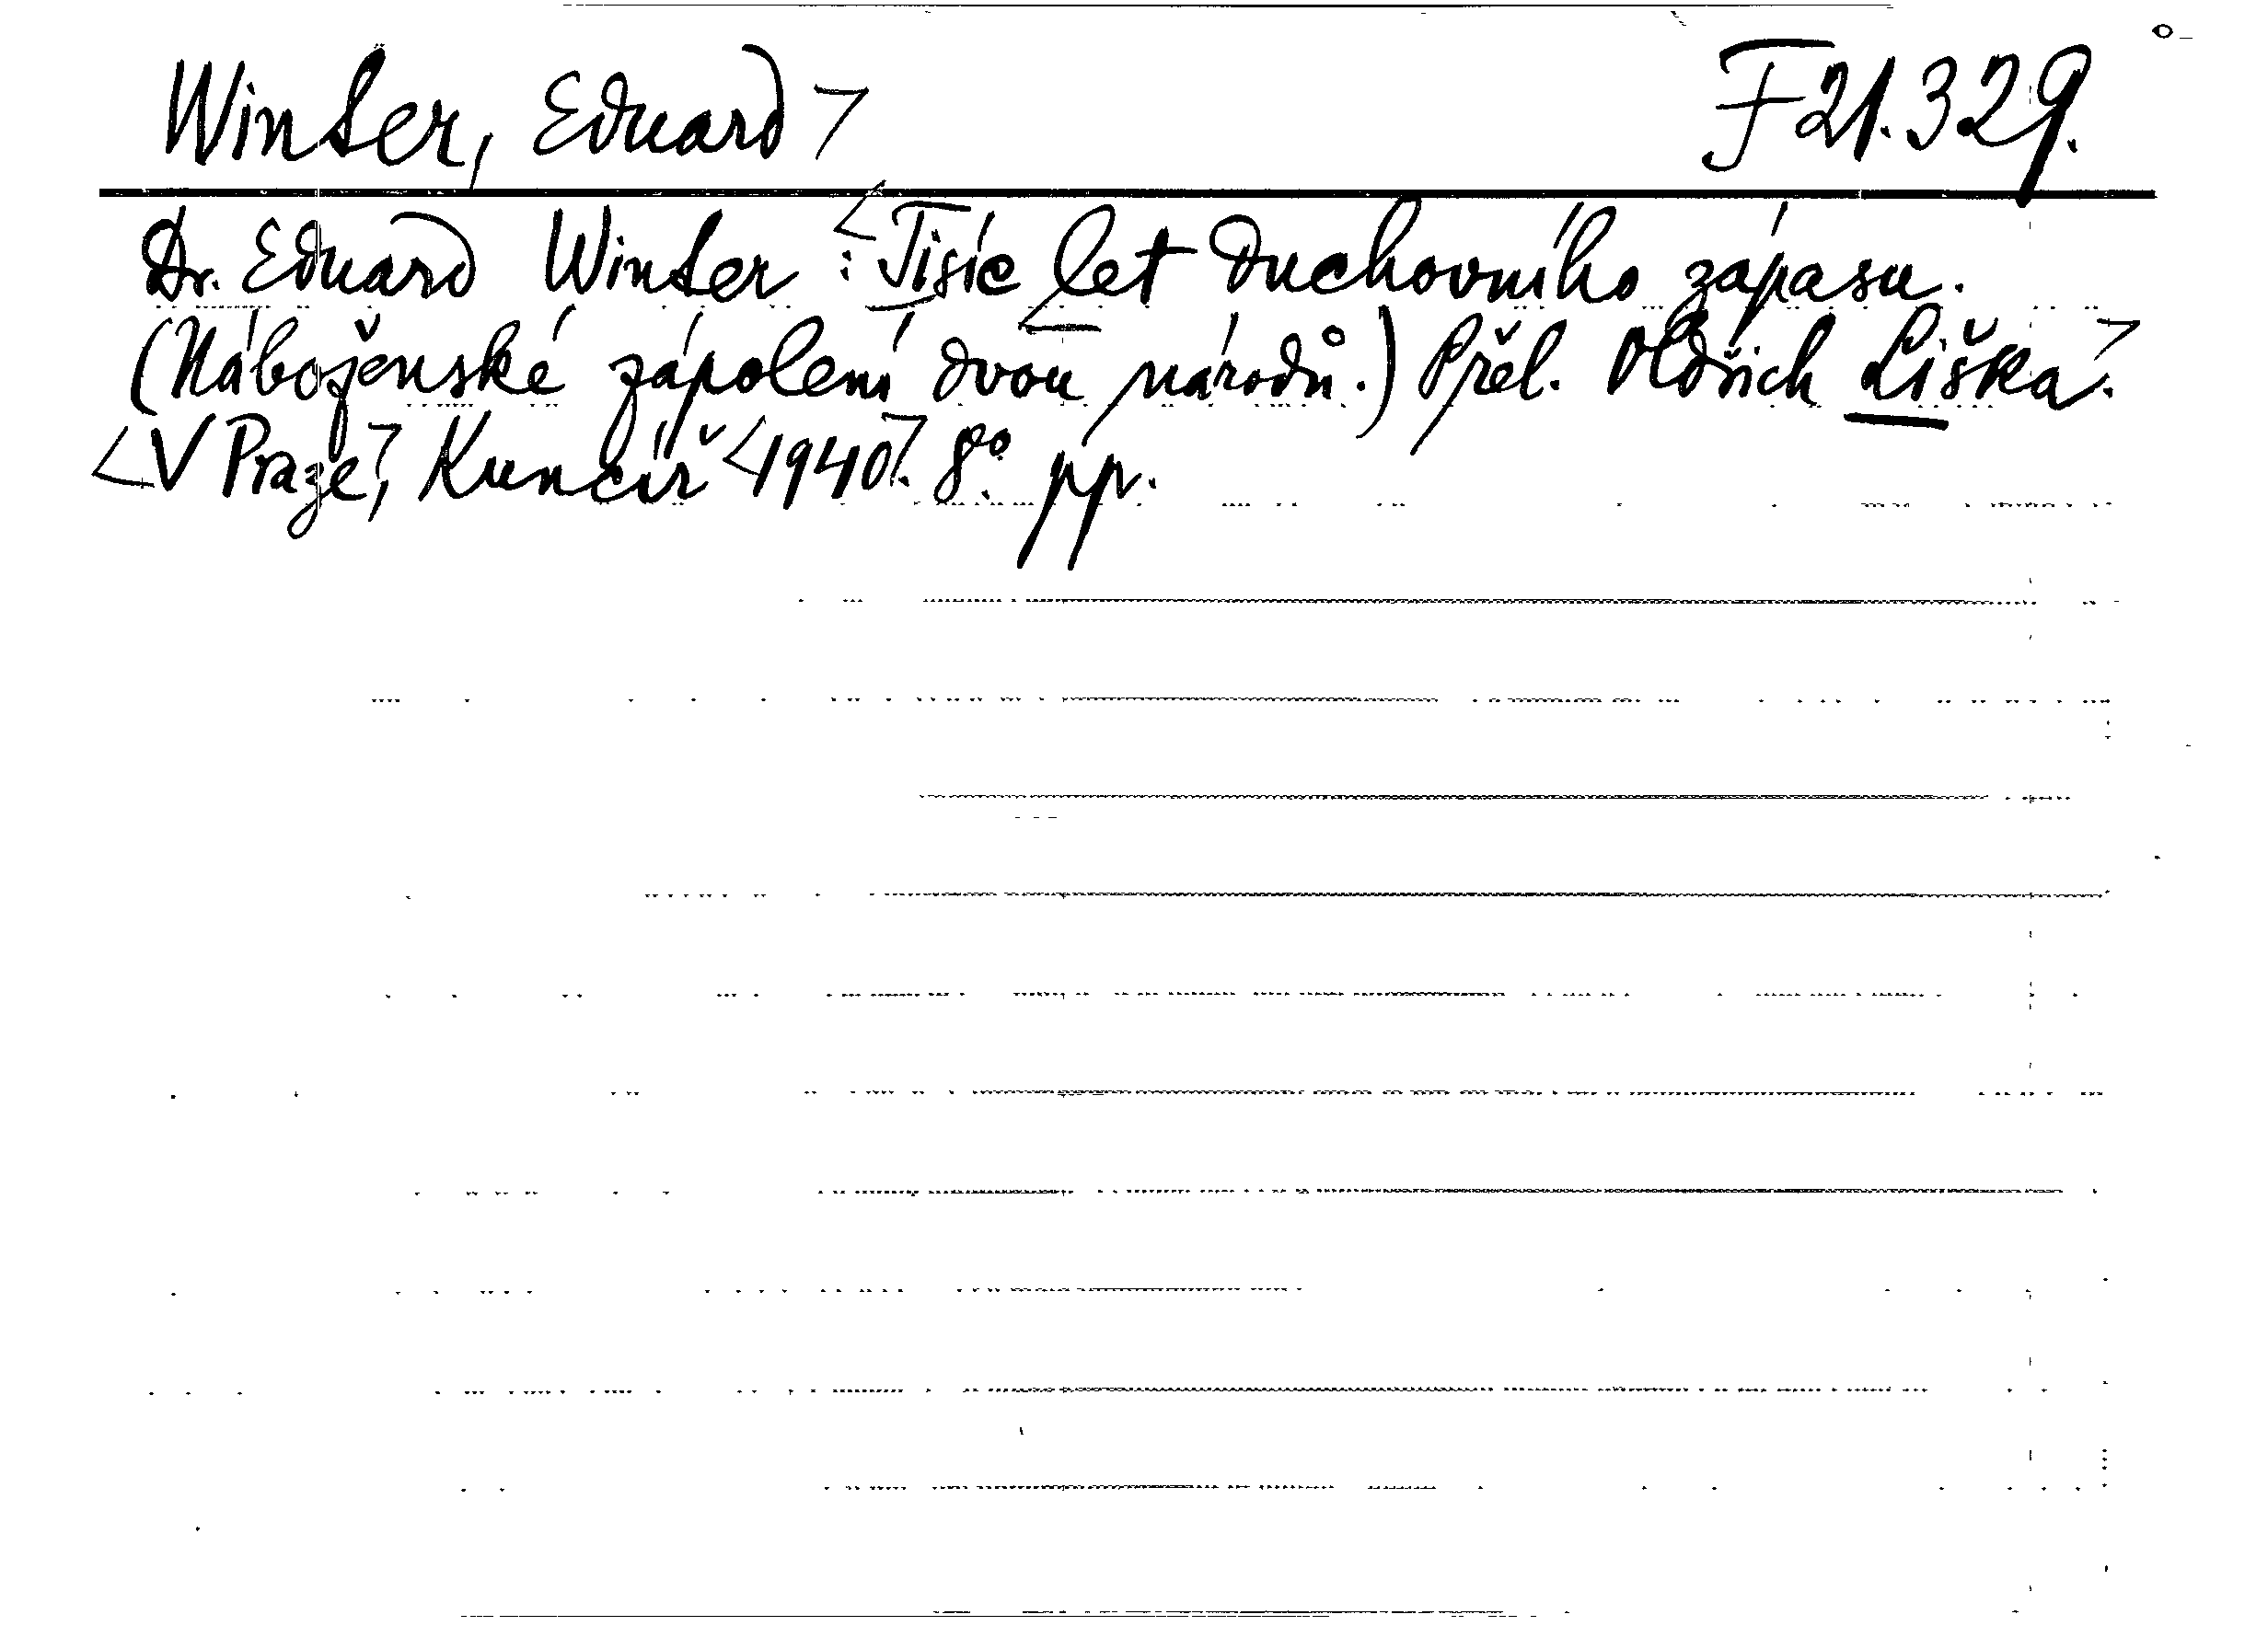 Winter, Eduard
F 21.329.
Dr. Eduard Winter : Tisíc let duchovního zápasu.
(Náboženské zápolení dvou národů.) Přel. Oldřich Liška.
V Praze, Kuncíř 1940. 8° pp.